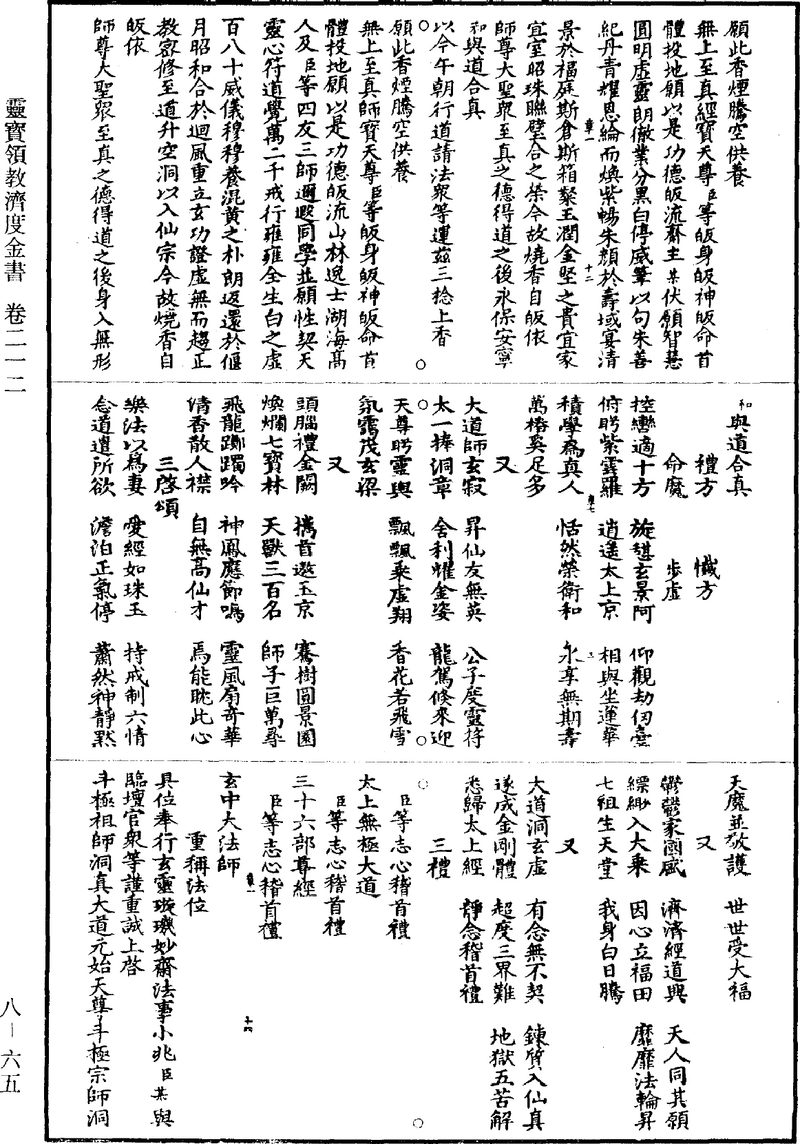 願此香煙騰空供養
無上至真經寶天尊臣等皈身皈神皈命首
體投地願以是功德皈流齋主某伏願智慧
圓明虛靈朗徹業分黑白停威筆以句朱善
紀丹青耀恩綸而煥紫暢朱顏於壽域宴清
景於福庭斯倉斯箱聚玉潤金堅之貴宜家
宜室昭珠聯璧合之榮今故燒香自皈依
師尊大聖眾至真之德得道之後永保安寧
和與道合真
以今午朝行道請法眾等運茲三捻上香
願此香煙騰空供養
無上至真師寶天尊臣等皈身皈神皈命首
體投地願以是功德皈流山林逸士湖海高
人及臣等四友三師邇遐同學並願性契天
靈心符道覺萬二千戒行雍雍全生白之虛
百八十威儀穆穆養混黃之朴朗返還於偃
月昭和合於迴風重立玄功證虛無而超正
教密修至道升空洞以入仙宗今故燒香自
皈依
師尊大聖眾至真之德得道之後身入無形
和與道合真
禮方 懺方
命魔 步虛
控轡適十方 旋憇玄景阿 仰觀劫仞臺
俯眄紫雲羅 逍遙太上京 相與坐蓮華
積學為真人 恬然榮衛和 永享無期壽
萬椿奚足多
又
大道師玄寂 昇仙友無英 公子度靈符
太一捧洞章 舍利耀金姿 龍駕倏來迎
天尊眄靈輿 飄飄乘虛翔 香花若飛雪
氛靄茂玄梁
又
頭腦禮金闕 攜首遨玉京 騫樹圓景園
煥爛七寶林 天獸三百名 師子巨萬尋
飛龍躑躅吟 神鳳應節鳴 靈風扇奇華
清香散人襟 自無高仙才 焉能眺此心
三啓頌
樂法以為妻 愛經如珠玉 持戒制六情
念道遣所欲 澹泊正氣停 蕭然神靜默
天魔並敬護 世世受大福
又
鬱鬱家國盛 濟濟經道興 天人同其願
縹緲入大乘 因心立福田 靡靡法輪昇
七祖生天堂 我身白日騰
又
大道洞玄虛 有念無不契 鍊質入仙真
遂成金剛體 超度三界難 地獄五苦解
悉歸太上經 靜念稽首禮
三禮
臣等志心稽首禮
太上無極大道
臣等志心稽首禮
三十六部尊經
臣等志心稽首禮
玄中大法師
重稱法位
具位奉行玄靈璇璣妙齋法事小兆臣某與
臨壇官眾等謹重誠上啓
斗極祖師洞真大道元始天尊斗極宗師洞
靈寶領教濟度金書 卷二一二
八－六五